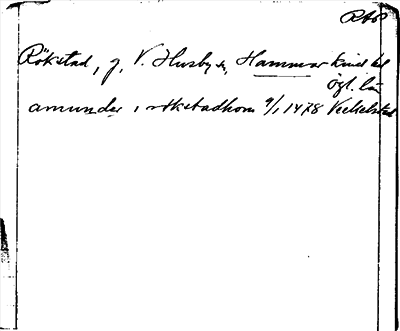 RAP
Rökstad, g, V. Husby sn, Hammarkind hd
ögl. län
amunder i rökstadhom 9/1 1478 Veckelstad